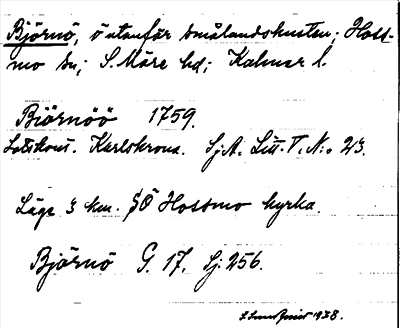 Björnö, ö utanför Smålandskusten; Hoss-
mo sn; S. Möre hd; Kalmar l.
Biörnöö 1759.
Lotskont. Karlskrona. Sj.A. Litt. V. N:o 23.
Läge 3 km. SÖ Hossmo kyrka.
Björnö G. 17. Sj. 256.
1928.